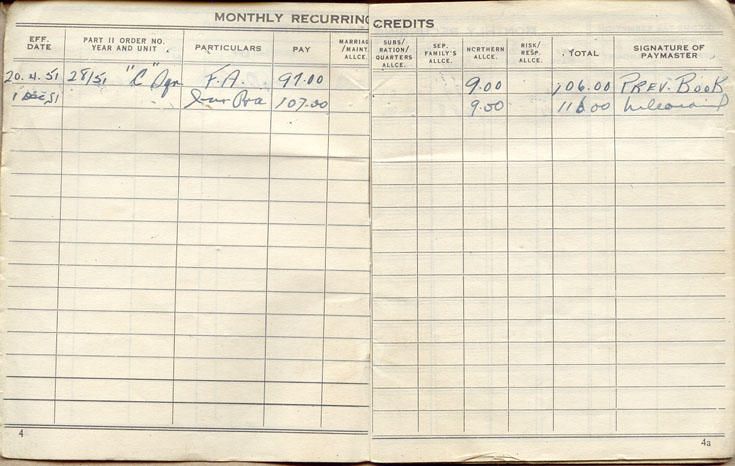 MONTHLY RECURRING CREDITS
EFF. DATE PART II ORDER NO. YEAR AND UNIT PARTICULARS PAY MARRIAG /MAINT. ALLCE. SUBS/ RATION/ QUARTERS ALLCE. SEP. FAMILY'S ALLCE. NORTHERN ALLCE. RISK/ RESP. ALLCE. TOTAL SIGNATURE OF PAYMASTER
20.4.51 28/51 "C" Dqn F.A. 97.00 9.00 106.00 PREV. BOOK
1 DEC 51 107.00 9.00 116.00
4 4a